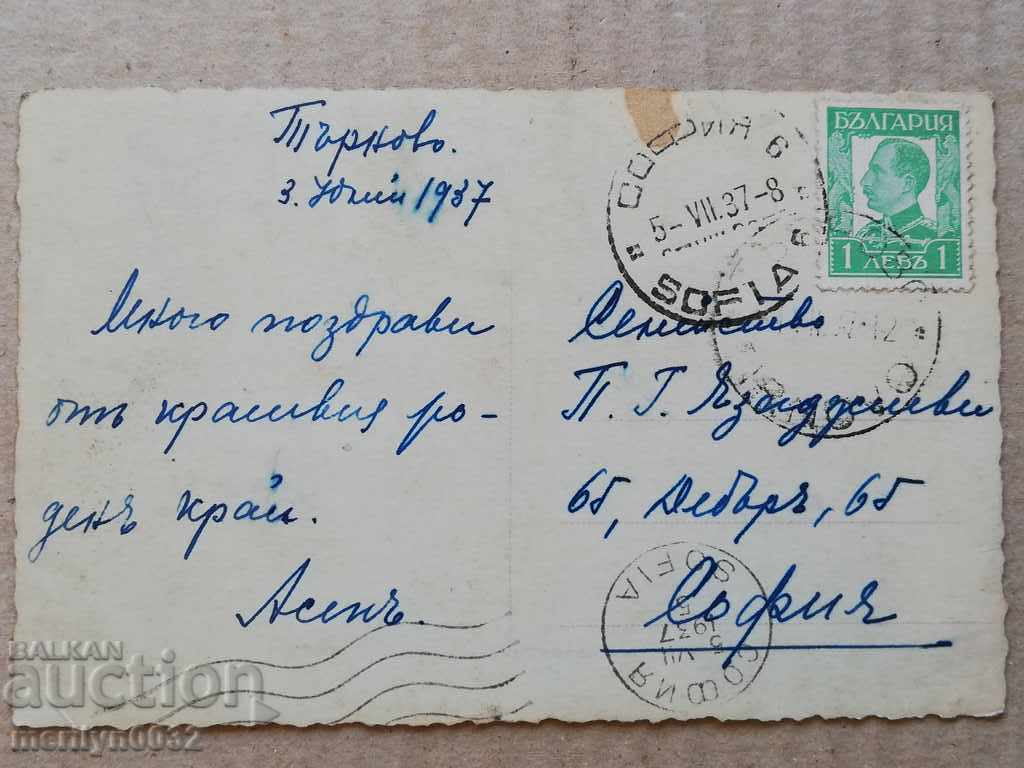 Търново.
3. Юлий 1937
Много поздрави
отъ красивия ро-
денъ край.
Асенъ.
БЪЛГАРИЯ
1 ЛЕВЪ 1
СОФИЯ 6
5-VII.37-8
SOFIA
Семейство
П. Г. Язаджиеви
65, Дебъръ, 65
София
SOFIA
5 VII
1937
СОФИЯ
BALKAN
auction
menlyn0032